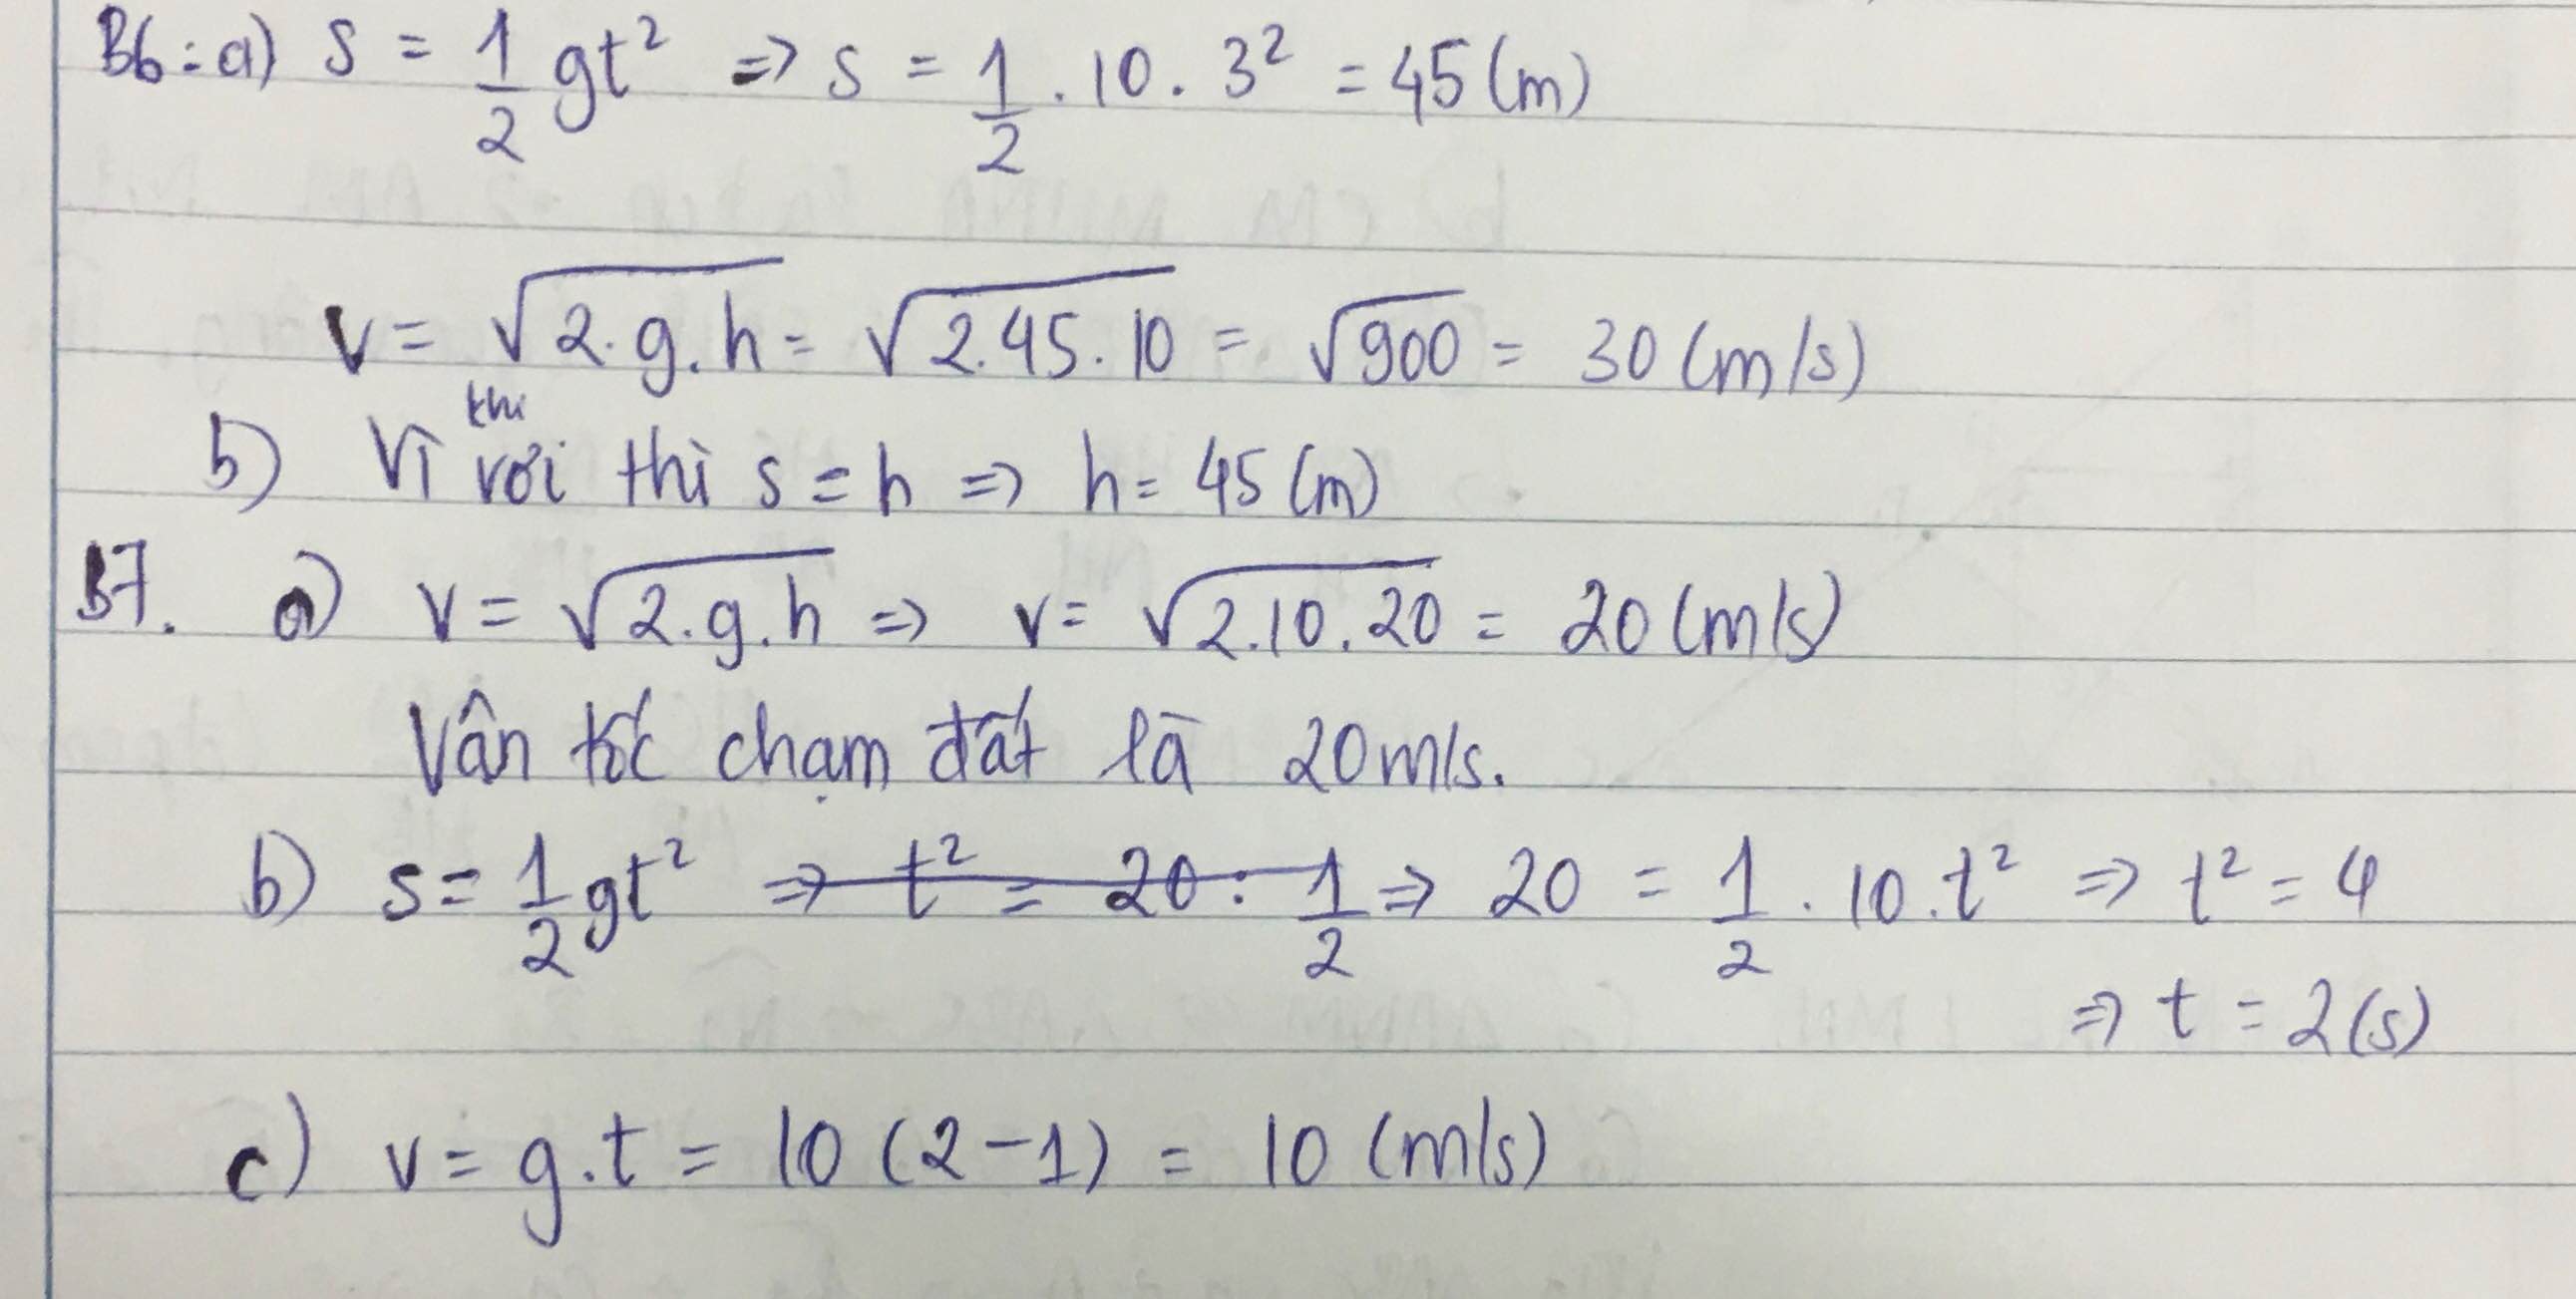 B6: a) s = 1/2 gt² => s = 1/2 . 10 . 3² = 45 (m)
v = √2.g.h = √2.45.10 = √900 = 30 (m/s)
b) Vì khi rơi thì s = h => h = 45 (m)
B7. a) v = √2.g.h => v = √2.10.20 = 20 (m/s)
Vân tốc chạm đất là 20m/s.
b) s = 1/2 gt² => t² = 20 : 1/2 => 20 = 1/2 . 10 . t² => t² = 4
=> t = 2 (s)
c) v = g.t = 10 (2-1) = 10 (m/s)